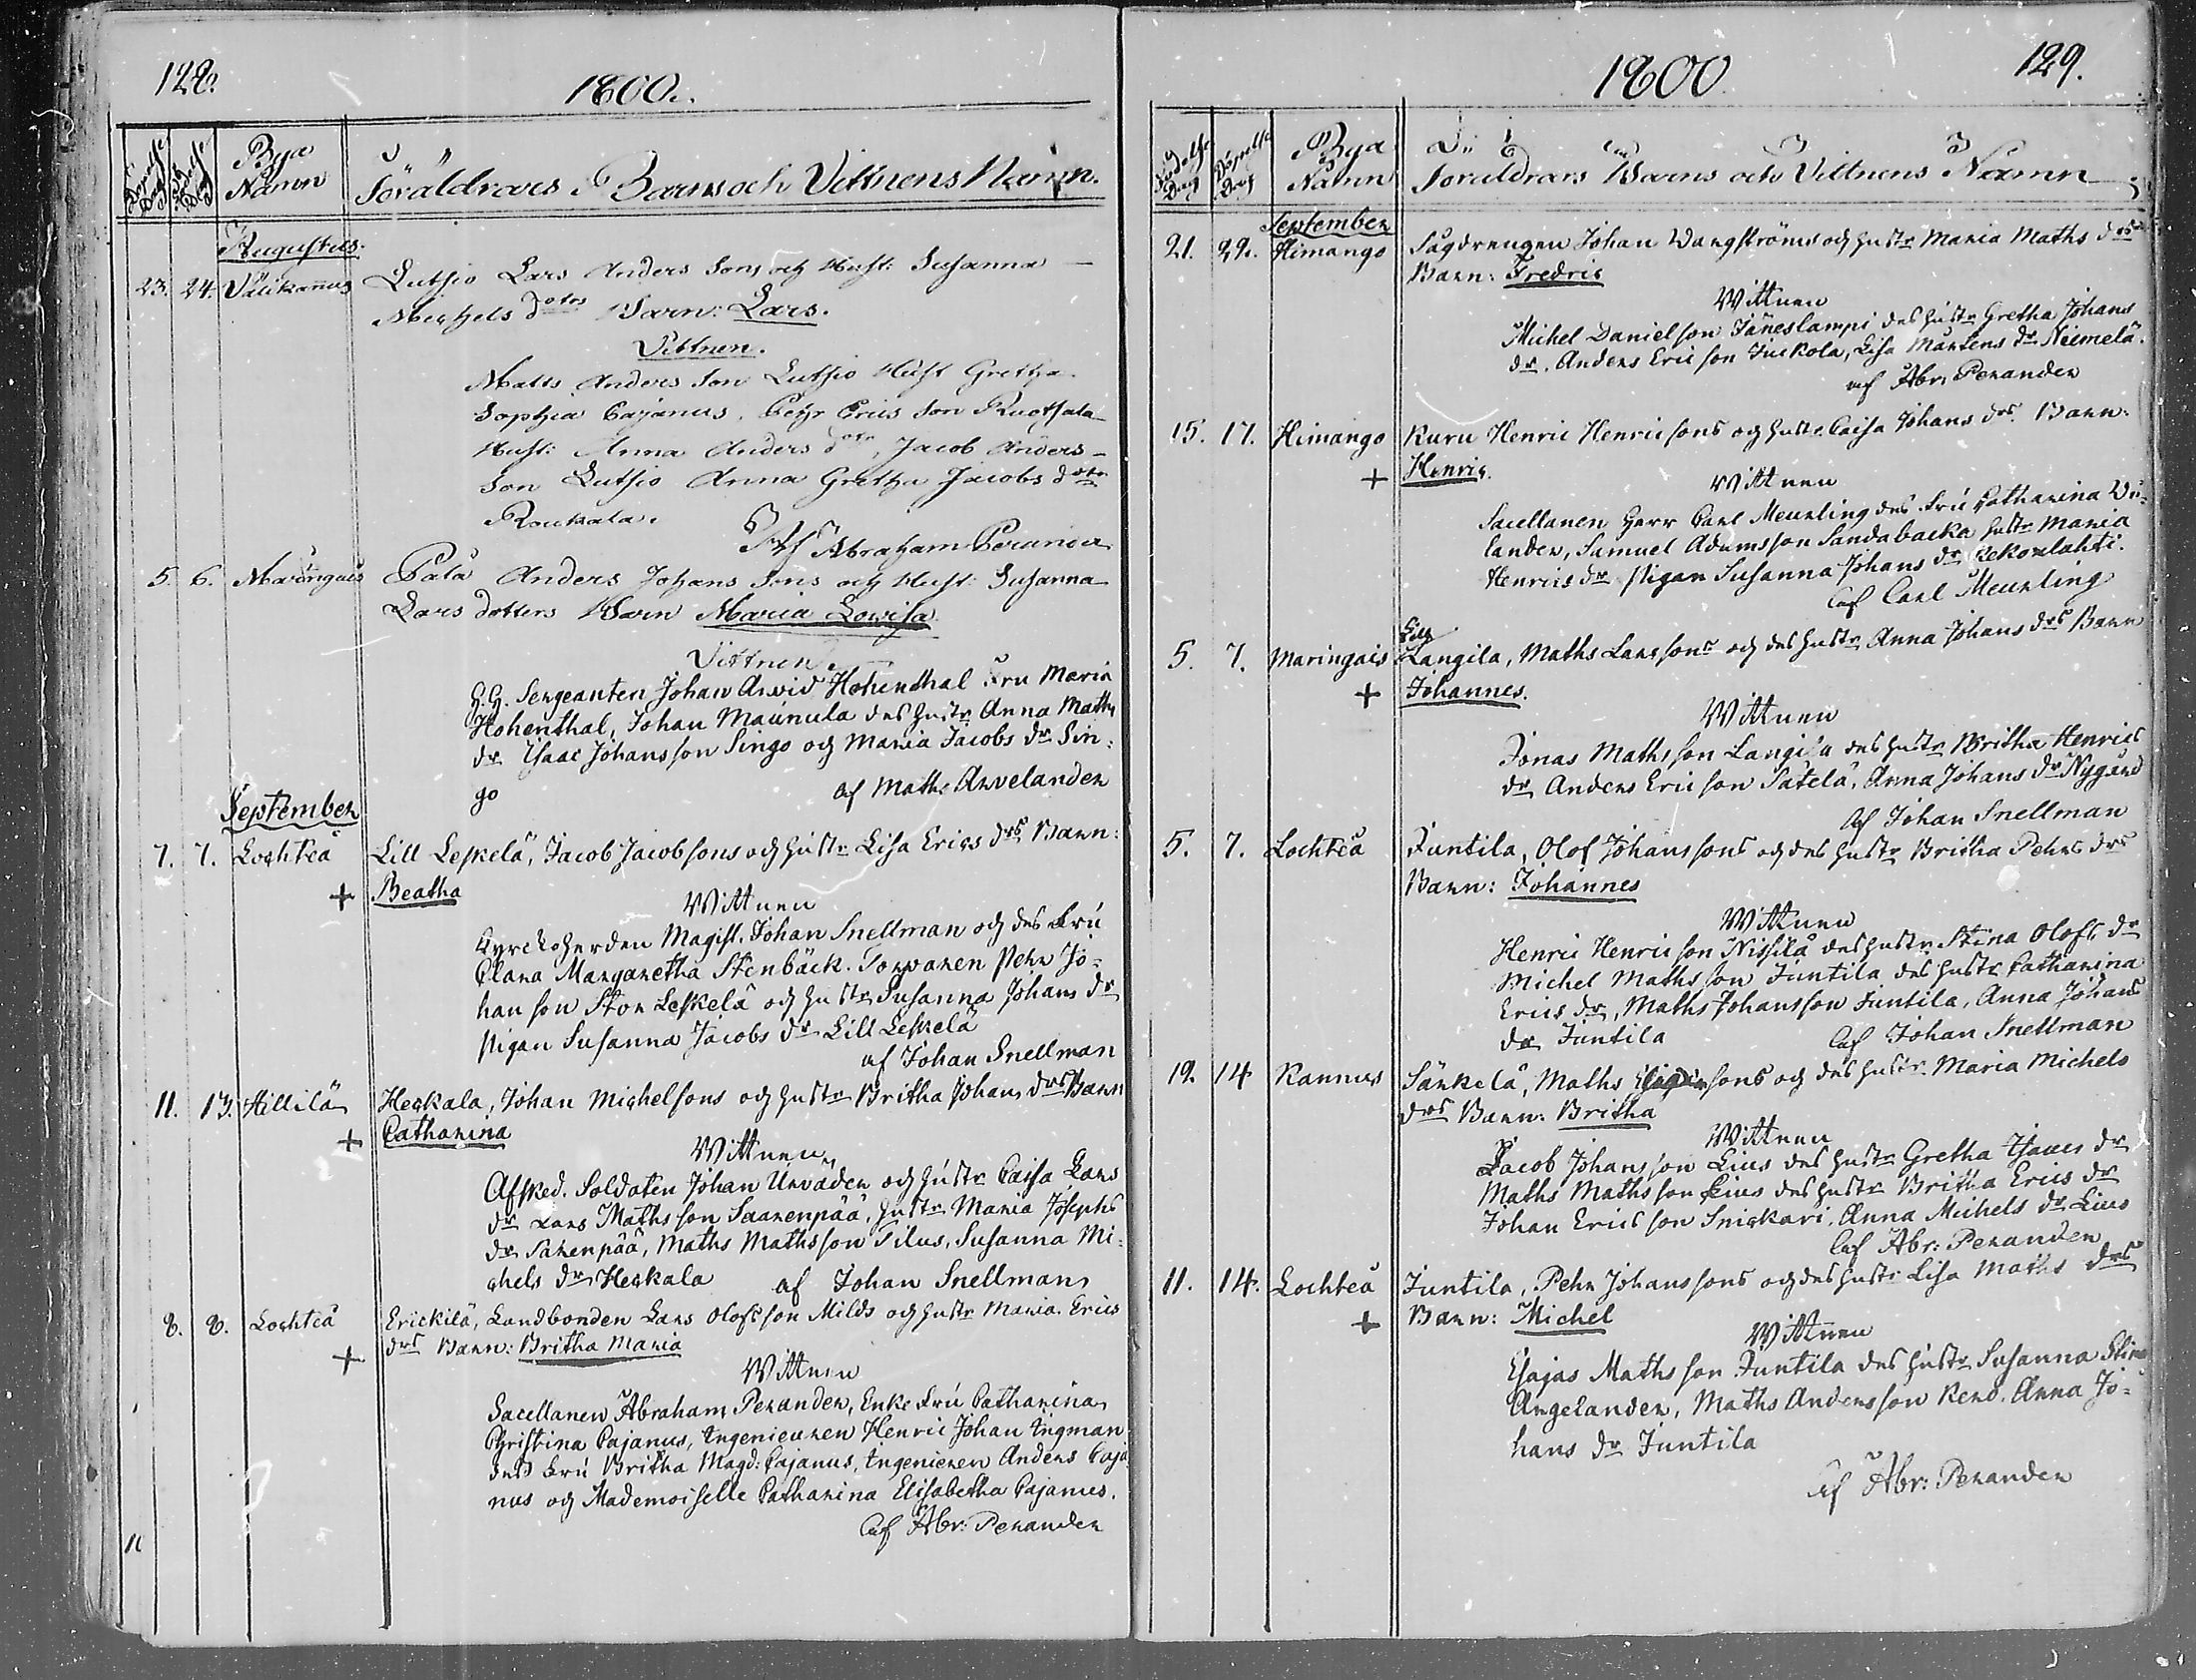 128.
1800.
Döpelse Dag
Födelse Dag
Bya Namn
Föräldrars Barns och Vittnens Namn.
Augustus.
23. 24. Välikannus Lutsio Lars Anders Sons och Hust: Susanna
Michels dotrs Barn: Lars.
Vittnen.
Matts Anders Son Lutsio Hust Gretha
Sophia Cajanus, Pehr Erics Son Ruotsala
Hust: Anna Anders dotr, Jacob Anders-
Son Lutsio Anna Gretha Jacobs dotr
Roukala.
Af Abraham Perander
5. 6. Maringais Pala Anders Johans Sons och Hust: Susanna
Lars dotters Barn Maria Lovisa
Vittnen.
H.H. Sergeanten Johan Arvid Hohenthal Fru Maria
Hohenthal, Johan Maunula des hustr Anna Maths
dr Isaac Johansson Singo och Maria Jacobs dr Sin-
go af Maths Arvelander
September
7. 7. Lochteå Lill Leskelä, Jacob Jacobsons och hustr Lisa Erics drs Barn:
+ Beatha
Wittnen
Kyrckoherden Magist. Johan Snellman och des Fru
Clara Margaretha Stenbäck. Torparen Pehr Jo-
hanson Stor Leskelä och hustr Susanna Johans dr
Pigan Susanna Jacobs dr Lill Leskelä
af Johan Snellman
11. 13. Hillilä Heckala, Johan Michelsons och hustr Britha Johans drs Barn
+ Catharina
Wittnen
Afsked. Soldaten Johan Urväder och hustr Caisa Lars
dr Lars Mathsson Saarenpää, hustr Maria Josephs
dr Sarenpää, Maths Mathsson Tilus, Susanna Mi-
chels dr Heckala af Johan Snellman
8. 8. Lochteå Erickilä, Landbonden Lars Olofsson Milds och hustr Maria Erics
+ drs Barn: Britha Maria
Wittnen
Sacellanen Abraham Perander, Enke Fru Catharina
Christina Cajanus, Ingenieuren Henric Johan Ingman
des Fru Britha Magd: Cajanus, Ingenieren Anders Caja
nus och Mademoiselle Catharina Elisabetha Cajanus.
af Abr: Perander
1800
129.
Födelse Dag
Döpelse Dag
Bya Namn
Föräldrars Barns och Vittnens Namn
September
21. 22. Himango Sågdrengen Johan Wargströms och hustr Maria Maths drs
Barn: Fredric
Wittnen
Michel Danielson Jäneslampi des hustr Gretha Johans
dr. Anders Ericson Juckola, Lisa Mårtens dr Niemelä.
af Abr: Perander
15. 17. Himango Kuru Henric Henricsons och hustr Caisa Johans drs Barn:
+ Henric.
Wittnen
Sacellanen Herr Carl Meurling des Fru Catharina Wu-
lander, Samuel Adamsson Sandabacka hustr Maria
Henrics dr Pigan Susanna Johans dr Rekorlahti.
af Carl Meurling
5. 7. Maringais Lill Langila, Maths Larssons och des hustr Anna Johans drs Barn
+ Johannes.
Wittnen
Jonas Mathsson Langila des hustr Britha Henrics
dr Anders Ericson Sätelä, Anna Johans dr Nygård
af Johan Snellman
5. 7. Lochteå Juntila, Olof Johanssons och des hustr Britha Pehrs drs
Barn: Johannes
Wittnen
Henric Henricson Nissilä des hustr Stina Olofs dr
Michel Mathsson Juntila des hustr Catharina
Erics dr, Maths Johansson Juntila, Anna Johans
dr Juntila af Johan Snellman
12. 14 Kannus Särkelä, Maths sons och des hustr Maria Michels
drs Barn: Britha
Wittnen
Jacob Johansson Lius des hustr Gretha Isaacs dr
Maths Mathsson Lius des hustr Britha Erics dr
Johan Ericsson Snickari, Anna Michels dr Lius
af Abr: Perander
11. 14. Lochteå Juntila, Pehr Johanssons och des hustr Lisa Maths drs
+ Barn: Michel
Wittnen
Esajas Mathsson Juntila des hustr Susanna Stina
Argelander, Maths Andersson Kero. Anna Jo-
hans dr Juntila
af Abr: Perander